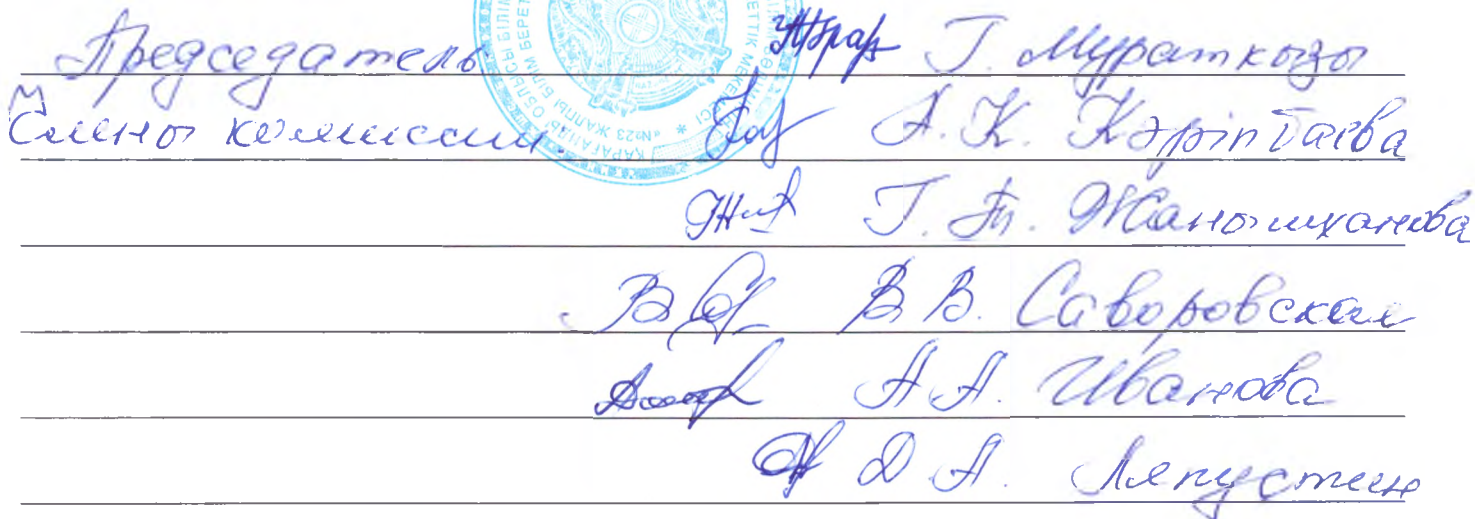 Председатель Г. Мураткызы
Члены комиссии. А. К. Кәріпбаева
Г. Т. Жанышханова
В В. Саворовская
А А. Иванова
Д А. Ляпустин
ҚАРАҒАНДЫ ОБЛЫСЫ БІЛІМ
«№23 ЖАЛПЫ БІЛІМ БЕРЕТ
ЕТТІК МЕКЕМЕСІ